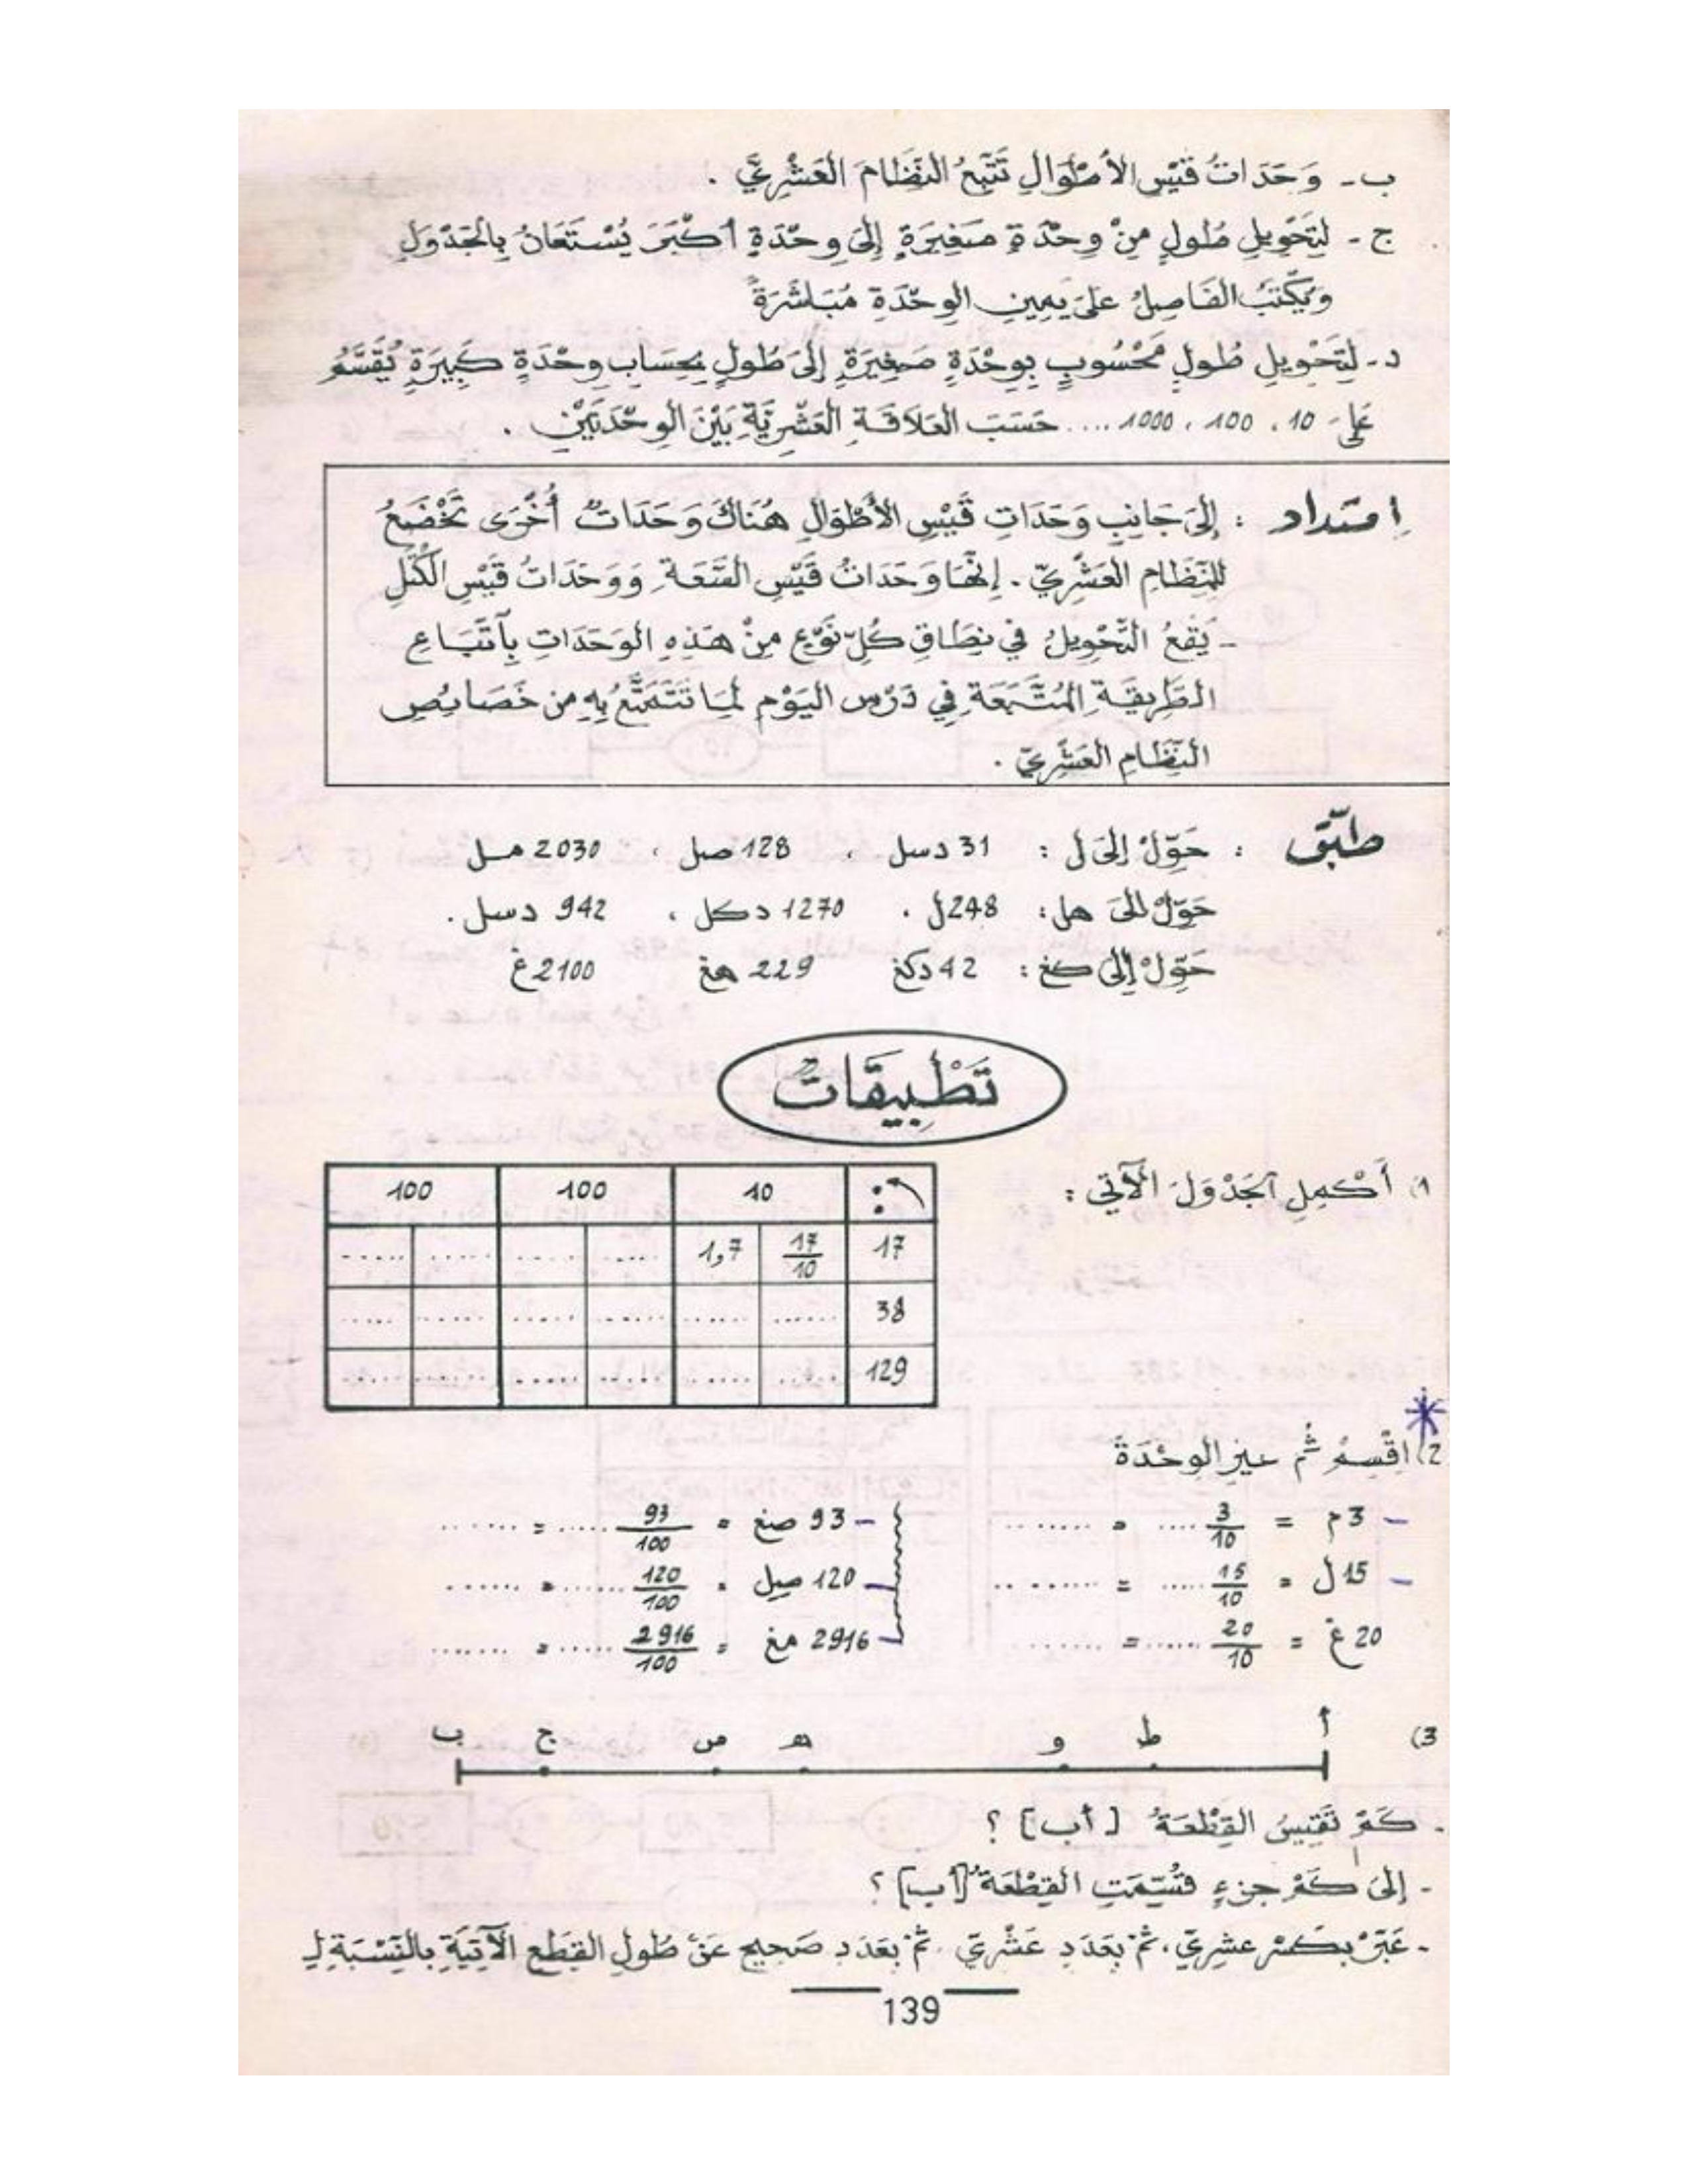 ب- وَحَدَاتُ قَيْسِ الأَطْوَالِ تَتْبَعُ النِّظَامَ العَشْرِيَّ .
ج- لِتَحْوِيلِ طُولٍ مِنْ وِحْدَةٍ صَغِيرَةٍ إِلَى وِحْدَةٍ أَكْبَرَ يُسْتَعَانُ بِالجَدْوَلِ
وَيُكْتَبُ الفَاصِلُ عَلَى يَمِينِ الوِحْدَةِ مُبَاشَرَةً
د- لِتَحْوِيلِ طُولٍ مَحْسُوبٍ بِوِحْدَةٍ صَغِيرَةٍ إِلَى طُولٍ بِحِسَابِ وِحْدَةٍ كَبِيرَةٍ يُقَسَّمُ
عَلَى 10 ، 100 ، 1000 .... حَسَبَ العَلَاقَةِ العَشْرِيَّةِ بَيْنَ الوِحْدَتَيْنِ .
اِمتداد : إِلَى جَانِبِ وَحَدَاتِ قَيْسِ الأَطْوَالِ هُنَاكَ وَحَدَاتٌ أُخْرَى تَخْضَعُ
لِلنِّظَامِ العَشْرِيِّ . إِنَّهَا وَحَدَاتُ قَيْسِ السَّعَةِ وَوَحَدَاتُ قَيْسِ الكُتَلِ
- يَقَعُ التَّحْوِيلُ فِي نِطَاقِ كُلِّ نَوْعٍ مِنْ هَذِهِ الوَحَدَاتِ بِاتِّبَاعِ
الطَّرِيقَةِ المُتَّبَعَةِ فِي دَرْسِ اليَوْمِ لِمَا تَتَمَتَّعُ بِهِ مِن خَصَائِصِ
النِّظَامِ العَشْرِيِّ .
طبّق : حَوِّلْ إِلَى ل : 31 دسل ، 128 صل ، 2030 مل
حَوِّلْ إلَى هل : 248 ل ، 1270 دكل ، 942 دسل .
حَوِّلْ إِلَى كغ : 42 دكغ 229 هغ 2100 غ
تَطْبِيقَاتٌ
1) أَكْمِلِ الجَدْوَلَ الآتِي :
: 10 100 100
17 17/10 1,7 ...... ...... ...... ......
38 ...... ...... ...... ...... ...... ......
129 ...... ...... ...... ...... ...... ......
2) اِقْسِمْ ثُم عيزِ الوِحْدَةَ
- 3 م = 3/10 .... = ........
- 15 ل = 15/10 ..... = .........
20 غ = 20/10 ...... = ........
- 93 صغ = 93/100 ...... = .......
- 120 صل = 120/100 ...... = .......
- 2916 مغ = 2916/100 ...... = .......
3) أ ط و ه س ج ب
- كَمْ تَقِيسُ القِطْعَةُ [أب] ؟
- إلَى كَمْ جزءٍ قُسِّمَتِ القِطْعَةُ [أب] ؟
- عَبِّرْ بِكَسْرٍ عشرِيٍّ ، ثُمَّ بِعَدَدٍ عَشْرِيٍّ ، ثُمَّ بِعَدَدٍ صَحِيحٍ عَنْ طُولِ القِطَعِ الآتِيَةِ بِالنِّسْبَةِ لِـ
139